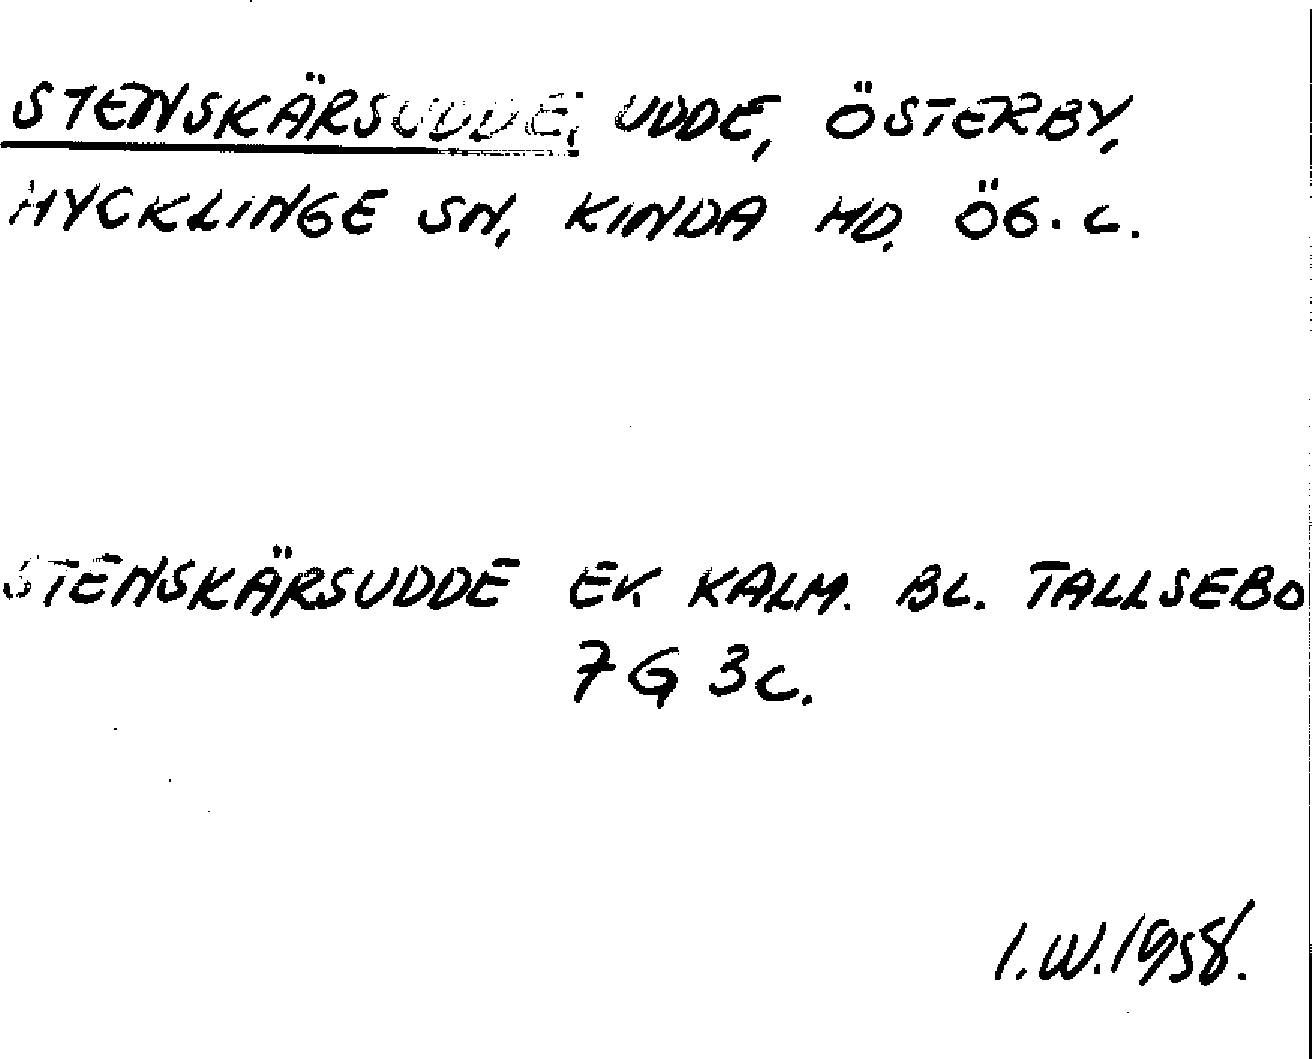 STENSKÄRSUDDE, UDDE, ÖSTERBY,
HYCKLINGE SN, KINDA HD. ÖG. L.
STENSKÄRSUDDE EK KALM. BL. TALLSEBO
7G 3c.
I.W. 1958.